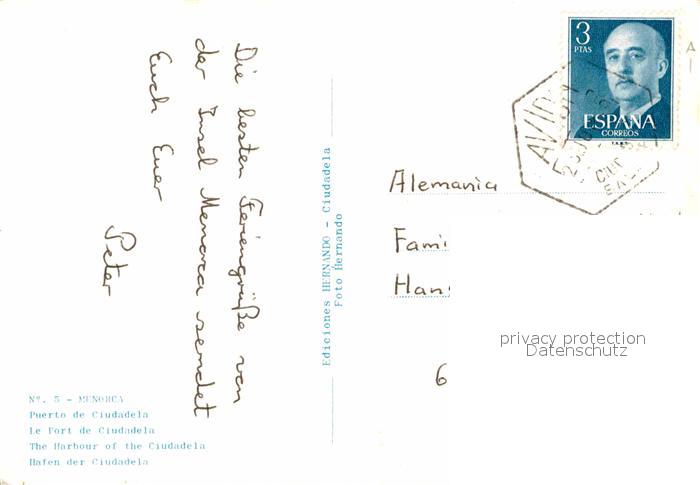 Die besten Feriengrüße von
der Insel Menorca sendet
Euch Euer
Peter
Nº. 5 - MENORCA
Puerto de Ciudadela
Le Port de Ciudadela
The Harbour of the Ciudadela
Hafen der Ciudadela
Ediciones HERNANDO - Ciudadela
Foto Hernando
3
PTAS
ESPAÑA
CORREOS
AVION
Alemania
Fami
Han
6
privacy protection
Datenschutz